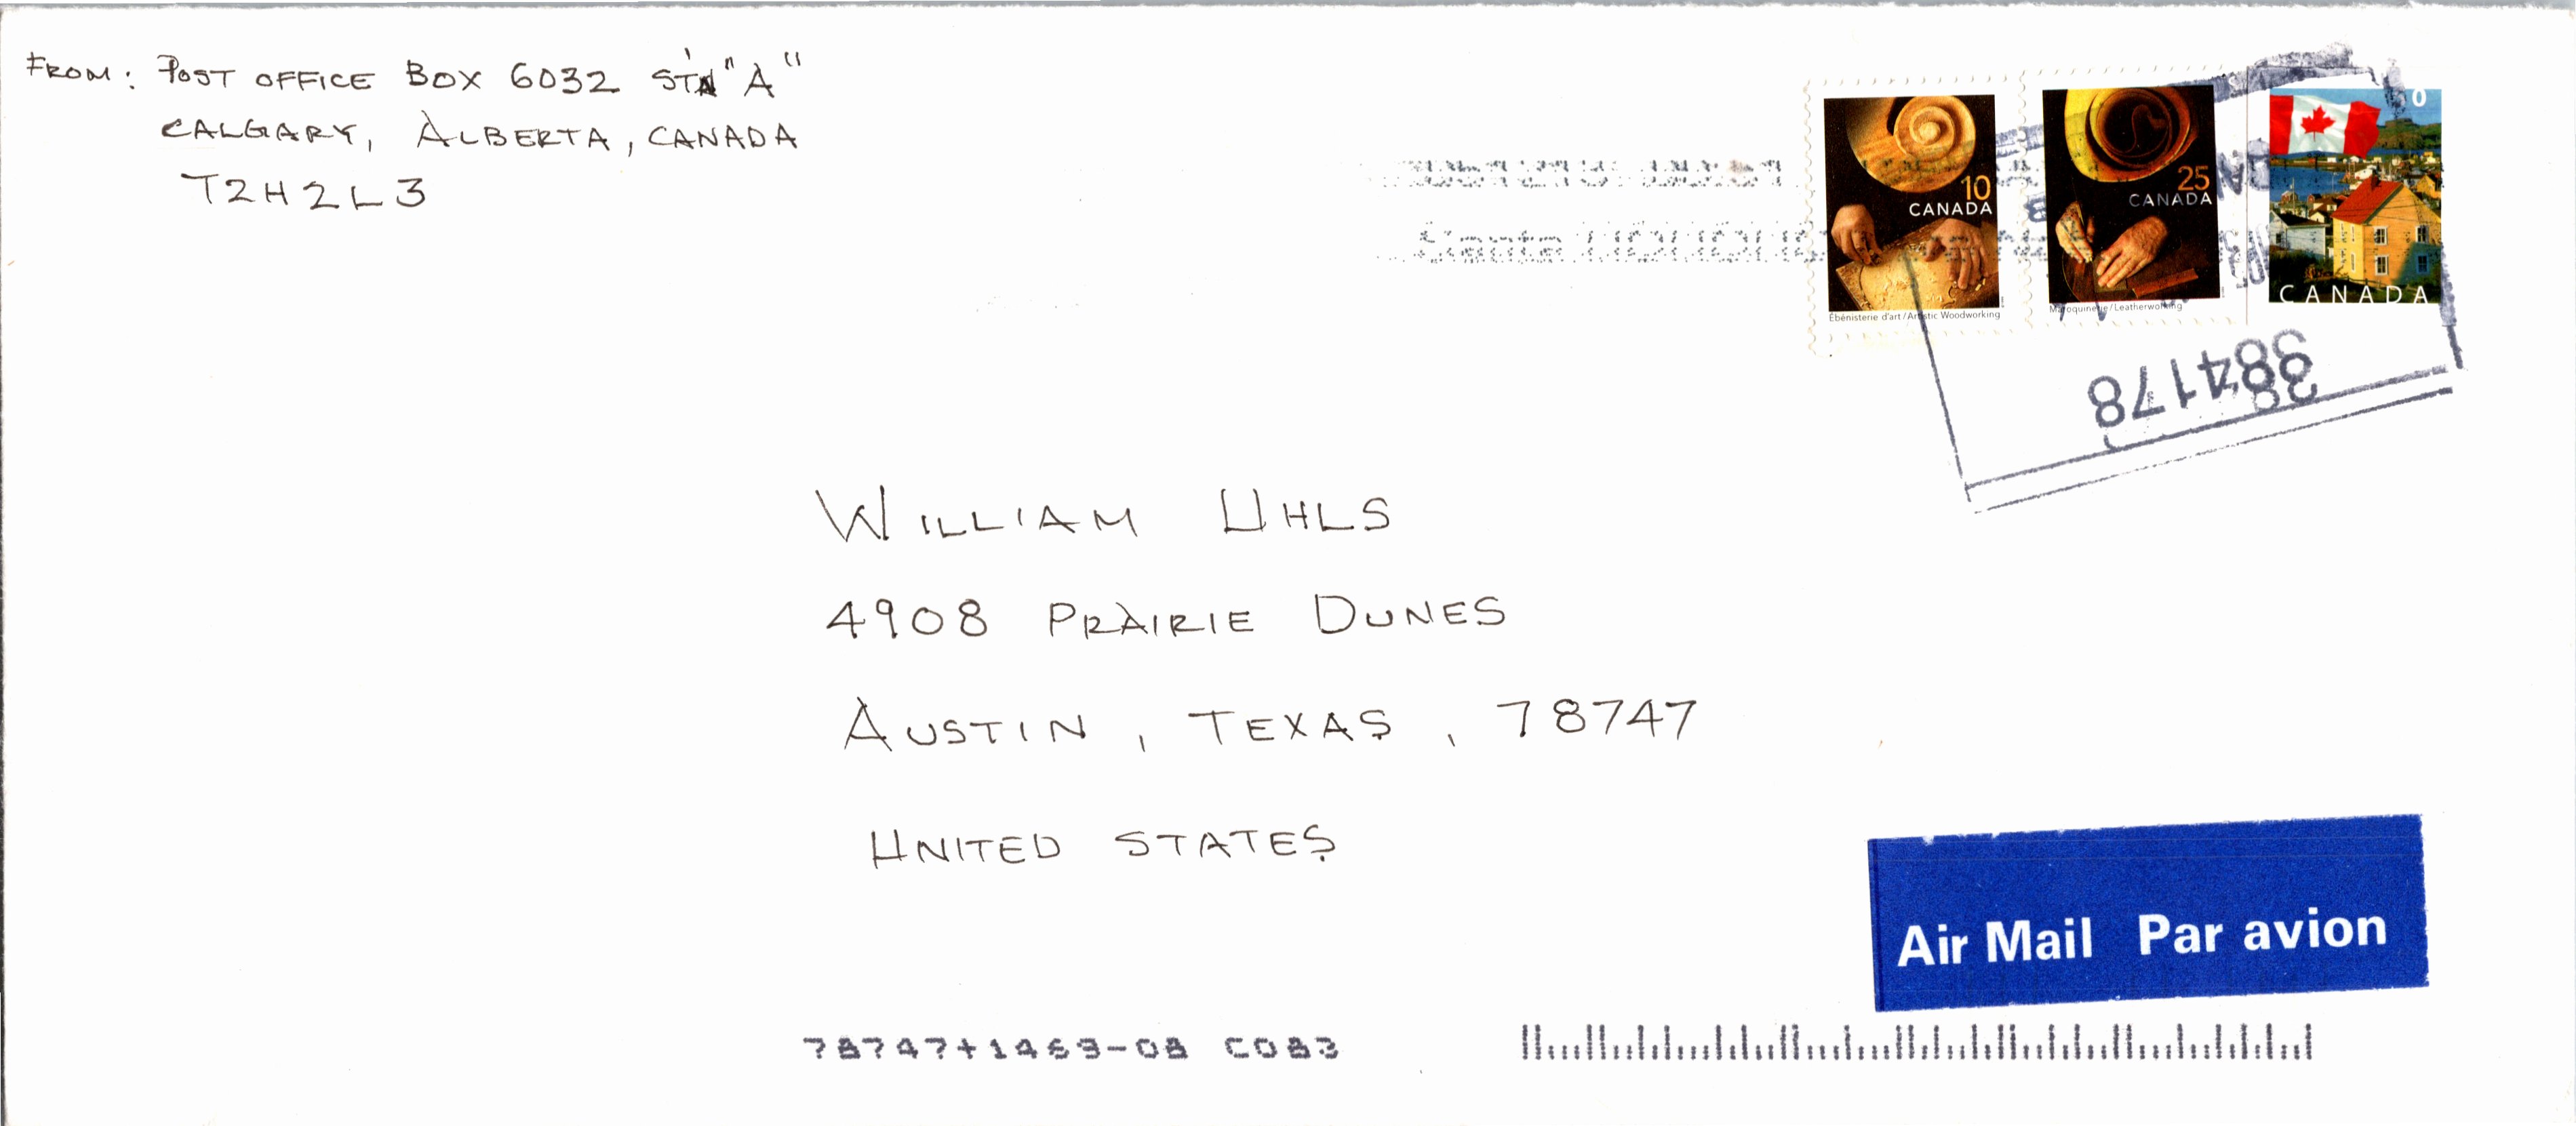 FROM: POST OFFICE BOX 6032 STN "A"
CALGARY, ALBERTA, CANADA
T2H2L3
10
CANADA
Ébénisterie d'art/Artistic Woodworking
25
CANADA
Maroquinerie/Leatherworking
0
CANADA
Santa
384178
WILLIAM UHLS
4908 PRAIRIE DUNES
AUSTIN, TEXAS, 78747
UNITED STATES
Air Mail Par avion
78747+1469-08 C083